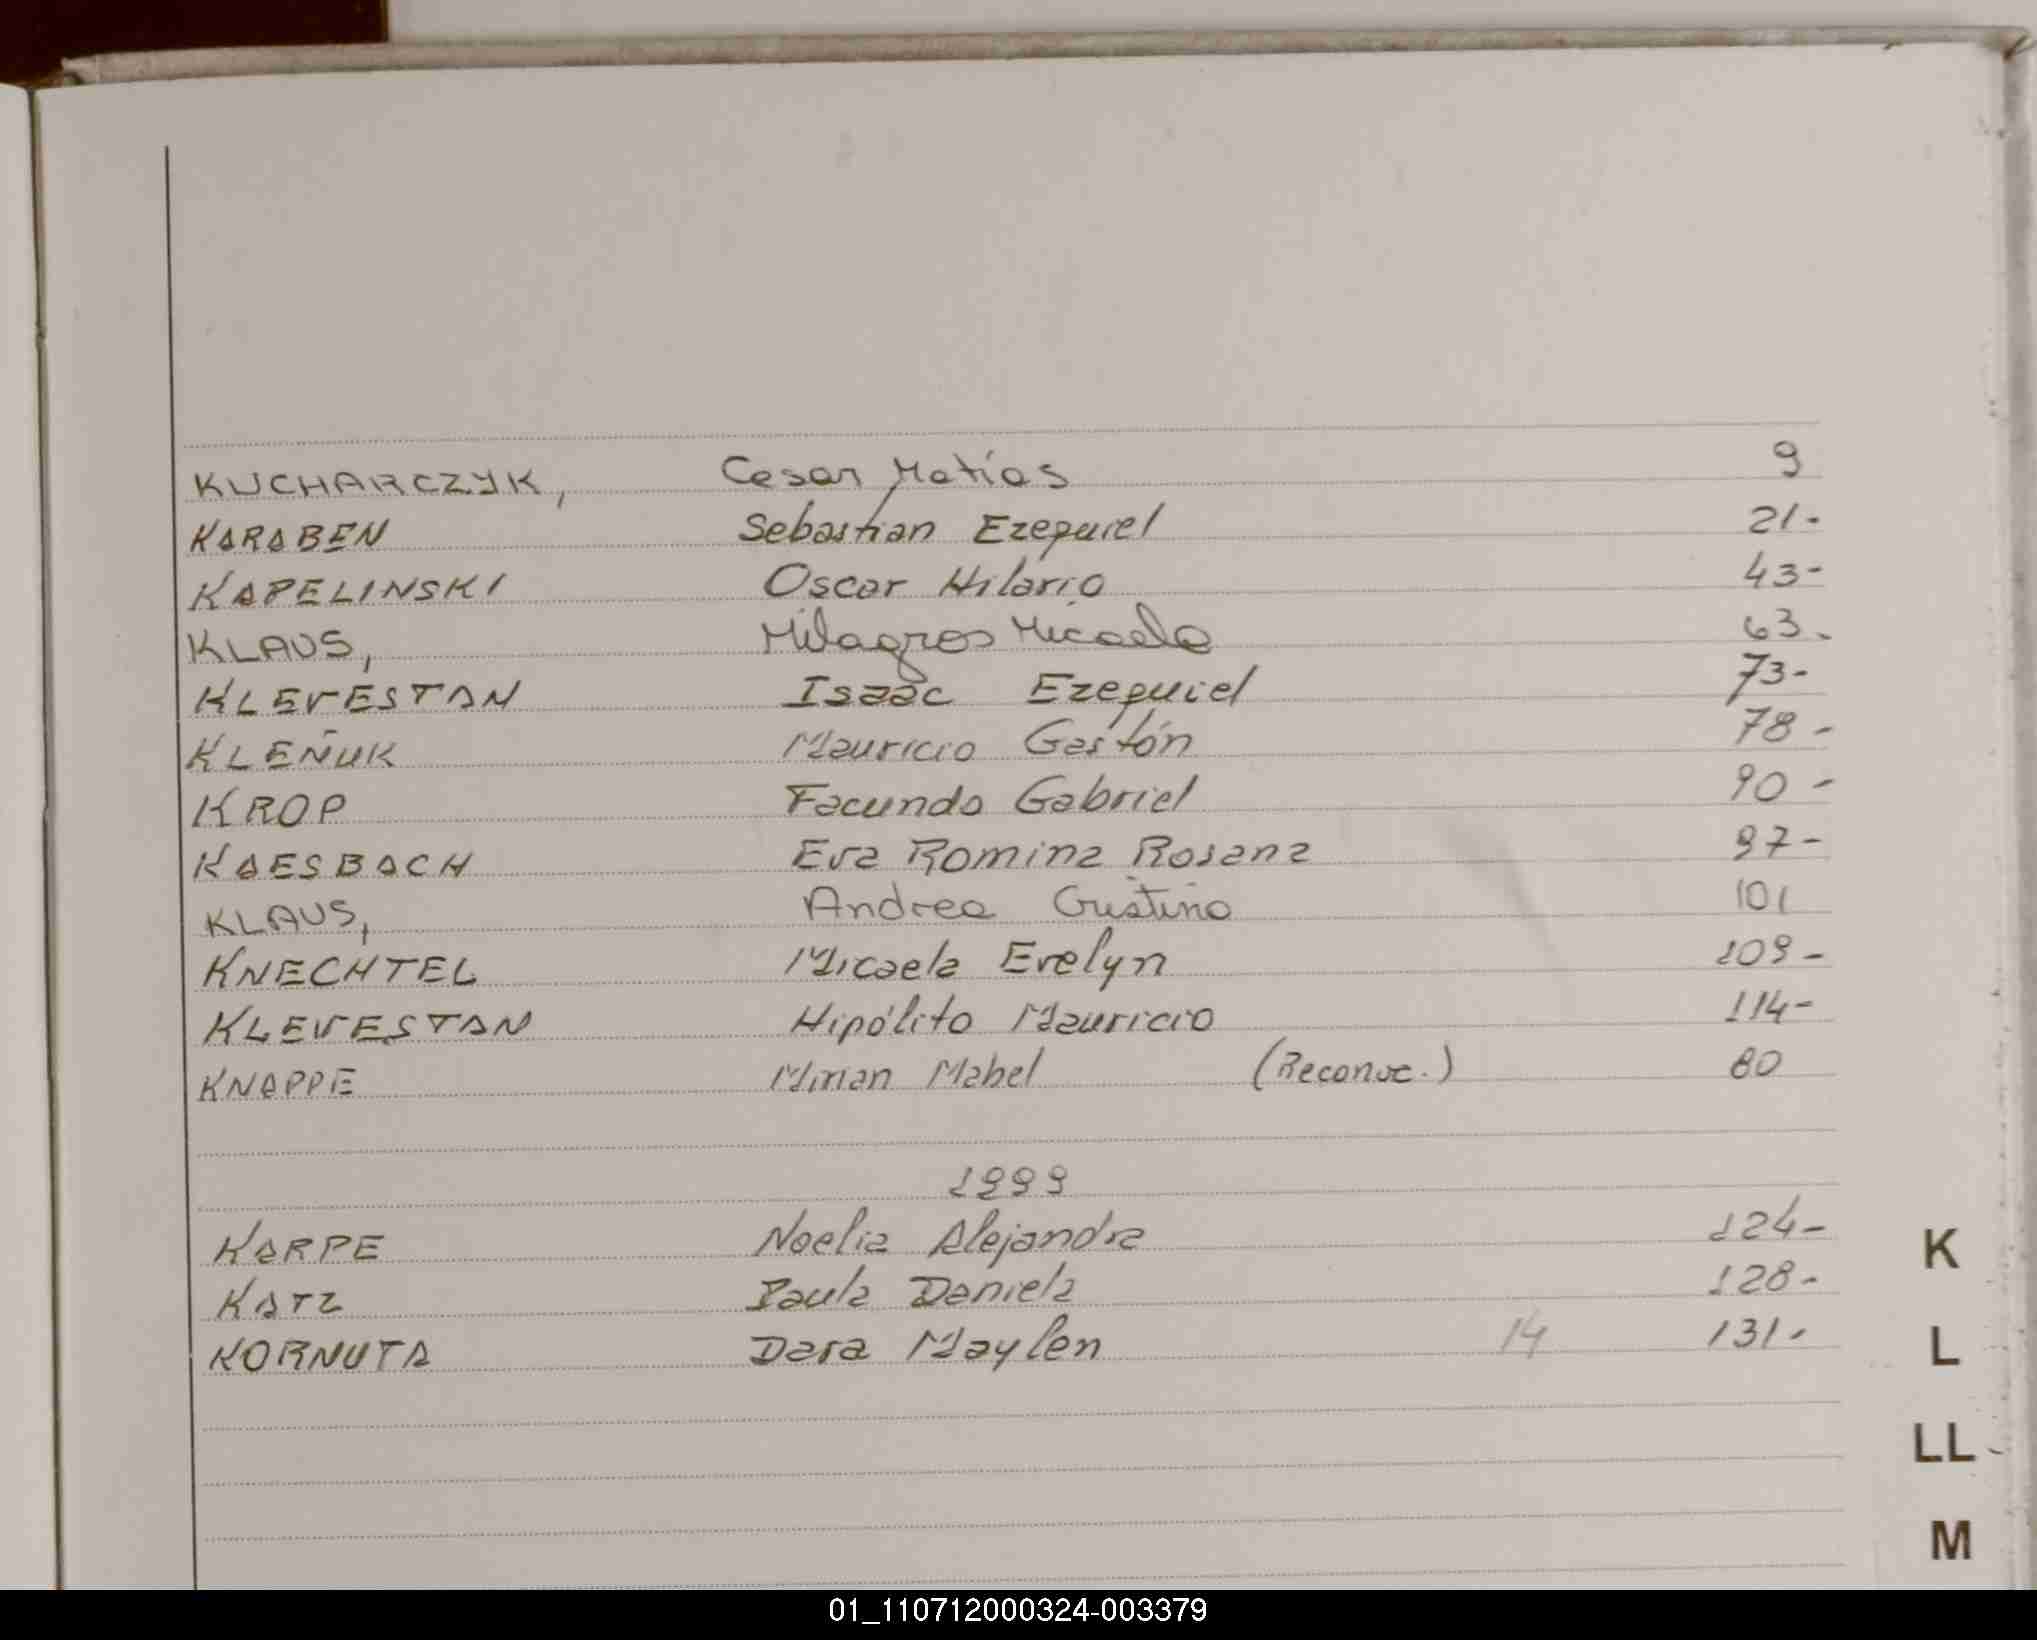 KUCHARCZYK, Cesar Matías 9
KARABEN Sebastian Ezequiel 21-
KAPELINSKI Oscar Hilario 43-
KLAUS, Milagros Micaela 63-
KLEVESTAN Isaac Ezequiel 73-
KLEÑUK Mauricio Gastón 78-
KROP Facundo Gabriel 90-
KAESBACH Eva Romina Rosana 97-
KLAUS, Andrea Cristina 101
KNECHTEL Micaela Evelyn 109-
KLEVESTAN Hipólito Mauricio 114-
KNAPPE Mirian Mabel (Reconoc.) 80
1999
KARPE Noelia Alejandra 124-
KATZ Paula Daniela 128-
KORNUTA Dara Maylen 14 131-
K
L
LL
M
01_110712000324-003379